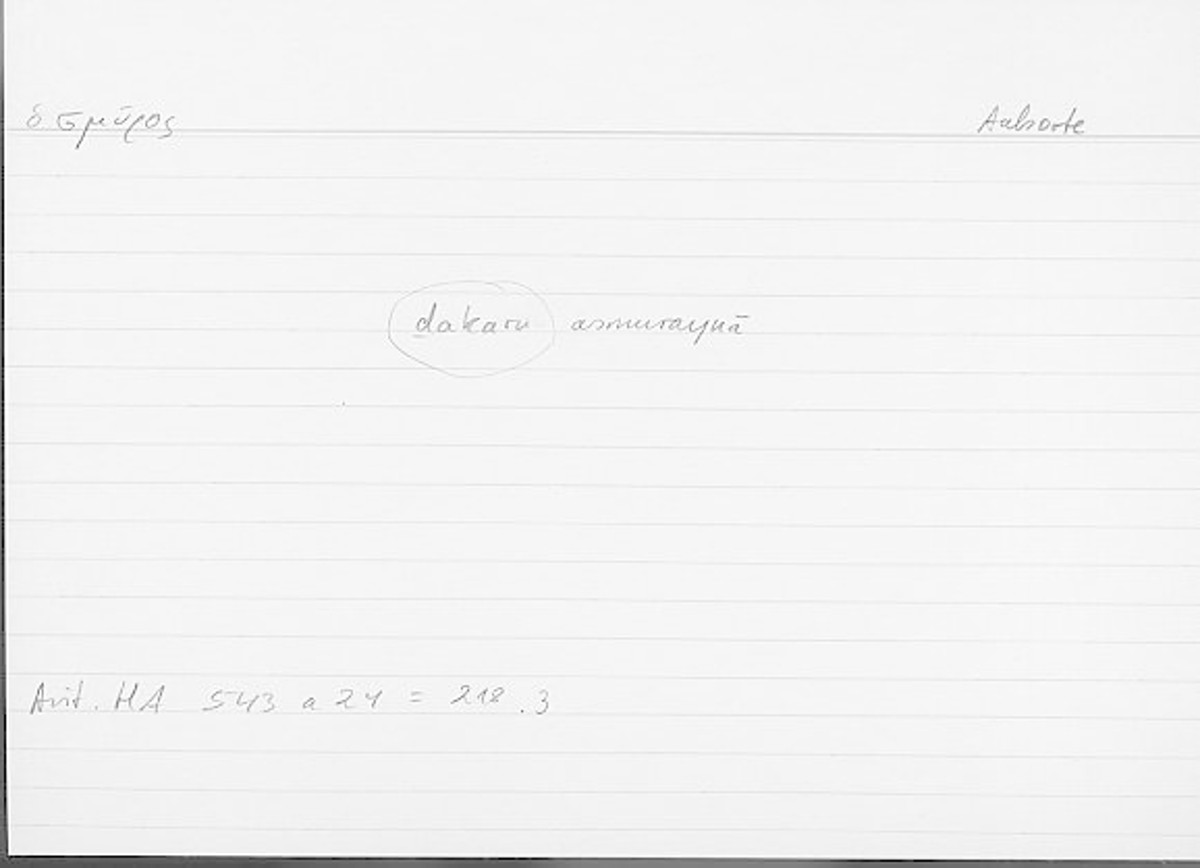 ὁ σμῦρος Aalsorte
ḏakaru asmuraynā
Arist. HA 543 a 24 = 218.3